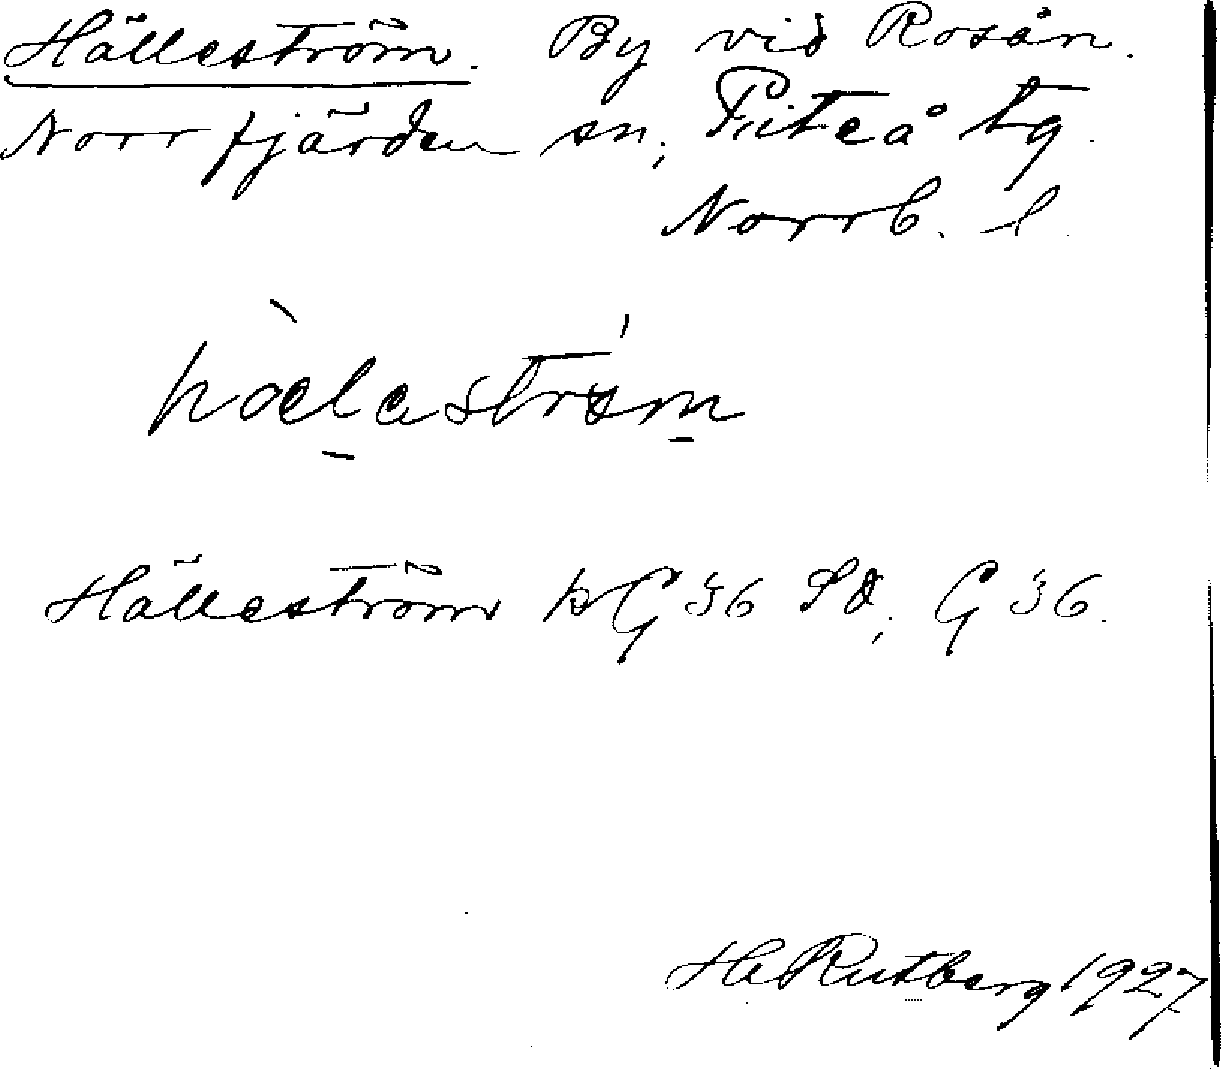 Hälleström. By vid Rosån.
Norrfjärden sn, Piteå tg.
Norrb. l.
hæleström
Hälleström kG 36 SO, G 36.
H. Rutberg 1927